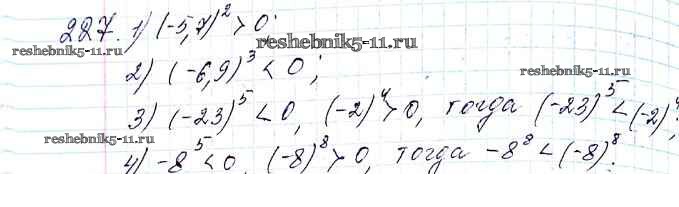 227. 1) (-5,7)² > 0;
reshebnik5-11.ru
reshebnik5-11.ru
2) (-6,9)³ < 0;
reshebnik5-11.ru
3) (-23)⁵ < 0, (-2)⁴ > 0, тогда (-23)⁵ < (-2)⁴;
reshebnik5-11.ru
4) -8⁵ < 0, (-8)⁸ > 0, тогда -8⁸ < (-8)⁸.